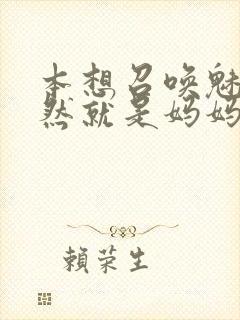 本想召唤魅
然就是妈妈
賴荣生